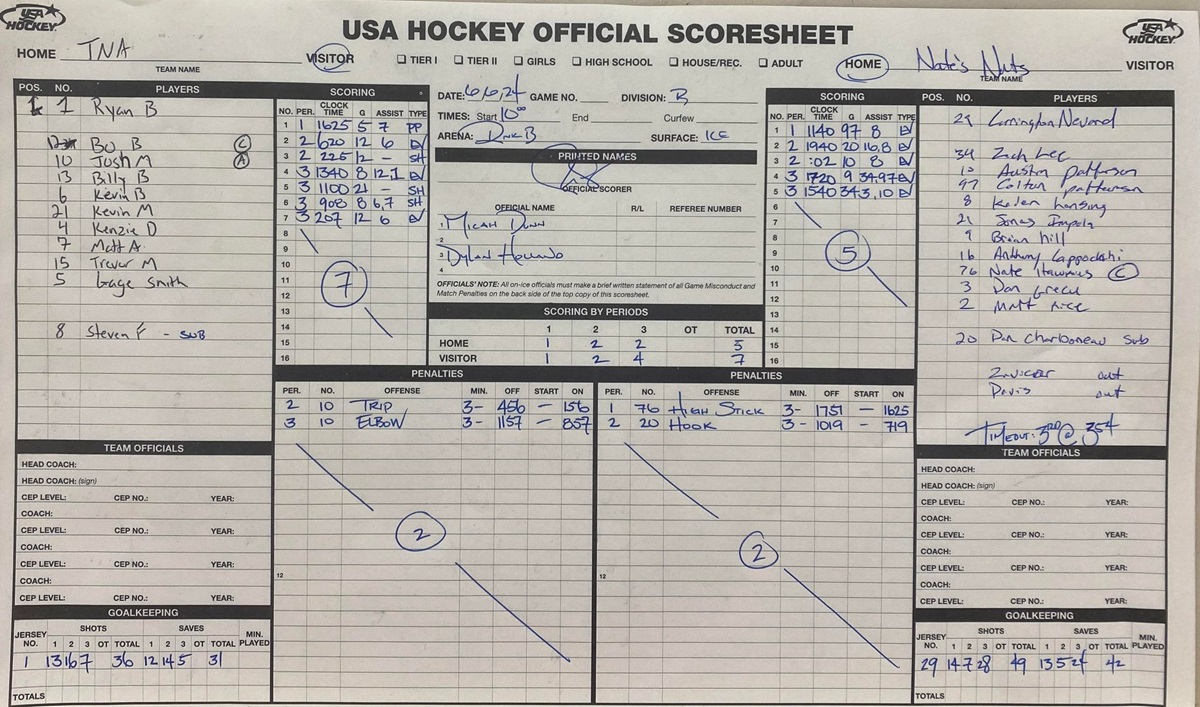 USA HOCKEY
USA HOCKEY OFFICIAL SCORESHEET
USA HOCKEY
HOME TNA VISITOR ☐ TIER I ☐ TIER II ☐ GIRLS ☐ HIGH SCHOOL ☐ HOUSE/REC. ☐ ADULT HOME Nate's Nuts VISITOR
TEAM NAME
TEAM NAME
POS. NO. PLAYERS
1 Ryan B
12 Bo, B C
10 Josh M A
13 Billy B
6 Kevin B
21 Kevin M
4 Kenzie D
7 Matt A.
15 Trevor M
5 Gage Smith
8 Steven F - SUB
SCORING
NO. PER. CLOCK TIME G ASSIST TYPE
1 1 1625 5 7 PP
2 2 620 12 6 EV
3 2 225 12 - SH
4 3 1340 8 12,1 EV
5 3 1100 21 - SH
6 3 908 8 6,7 SH
7 3 207 12 6 EV
8
9
10
11
12
13
14
15
16
7
DATE: 6/6/24 GAME NO. DIVISION: B
TIMES: Start 10:00 End Curfew
ARENA: Rink B SURFACE: ICE
PRINTED NAMES
OFFICIAL SCORER
OFFICIAL NAME R/L REFEREE NUMBER
1 MICAH DUNN
2
3 Dylan
4
OFFICIALS' NOTE: All on-ice officials must make a brief written statement of all Game Misconduct and
Match Penalties on the back side of the top copy of this scoresheet.
SCORING BY PERIODS
1 2 3 OT TOTAL
HOME 1 2 2 5
VISITOR 1 2 4 7
SCORING
NO. PER. CLOCK TIME G ASSIST TYPE
1 1 1140 97 8 EV
2 2 1940 20 16,8 EV
3 2 :02 10 8 EV
4 3 1720 9 34,97 EV
5 3 1540 34 3,10 EV
6
7
8
9
10
11
12
13
14
15
16
5
POS. NO. PLAYERS
29
34 Zach Lee
10 Austin patterson
97 Colton patterson
8 Kalen
21 Jonas
9 Brian hill
16 Anthony
76 Nate C
3 Dan Greco
2 Matt Rice
20 Dan Charboneau Sub
out
Davis out
TIMEOUT: 3RD @ 354
PENALTIES
PER. NO. OFFENSE MIN. OFF START ON
2 10 TRIP 3- 456 - 156
3 10 ELBOW 3- 1157 - 857
12
2
PENALTIES
PER. NO. OFFENSE MIN. OFF START ON
1 76 HIGH STICK 3- 1751 - 1625
2 20 HOOK 3- 1019 - 719
12
2
TEAM OFFICIALS
HEAD COACH:
HEAD COACH: (sign)
CEP LEVEL: CEP NO.: YEAR:
COACH:
CEP LEVEL: CEP NO.: YEAR:
COACH:
CEP LEVEL: CEP NO.: YEAR:
COACH:
CEP LEVEL: CEP NO.: YEAR:
GOALKEEPING
JERSEY NO. SHOTS SAVES MIN. PLAYED
1 2 3 OT TOTAL 1 2 3 OT TOTAL
1 13 16 7 36 12 14 5 31
TOTALS
TEAM OFFICIALS
HEAD COACH:
HEAD COACH: (sign)
CEP LEVEL: CEP NO.: YEAR:
COACH:
CEP LEVEL: CEP NO.: YEAR:
COACH:
CEP LEVEL: CEP NO.: YEAR:
COACH:
CEP LEVEL: CEP NO.: YEAR:
GOALKEEPING
JERSEY NO. SHOTS SAVES MIN. PLAYED
1 2 3 OT TOTAL 1 2 3 OT TOTAL
29 14 7 28 49 13 5 24 42
TOTALS